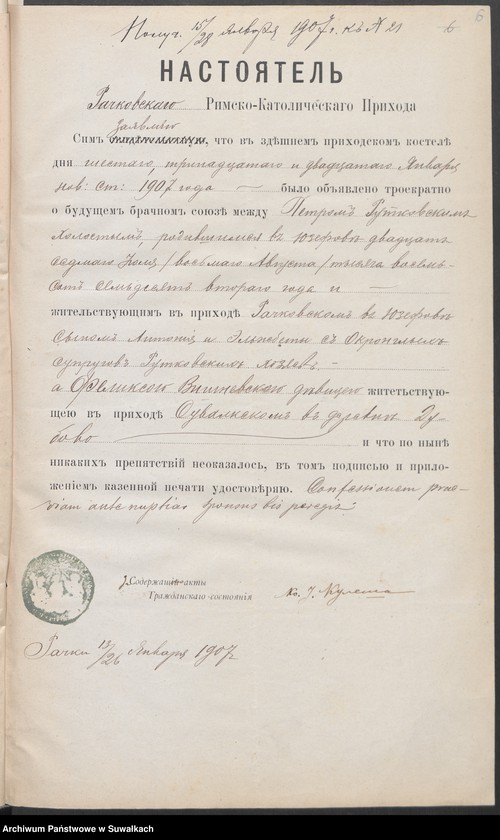 Получ. 15/28 января 1907 г. къ № 21
6
6
НАСТОЯТЕЛЬ
Рачковскаго Римско-Католическаго Прихода
Симъ заявляю, что въ здѣшнемъ приходскомъ костелѣ
дня шестаго, тринадцатаго и двадцатаго Января
нов: ст: 1907 года — было объявлено троекратно
о будущемъ брачномъ союзѣ между Петромъ Рутковскимъ
холостымъ, родившимся въ Юзефовѣ двадцать
седьмаго Юля /восьмаго Августа/ тысяча восемь-
сотъ семьдесятъ втораго года и —
жительствующимъ въ приходѣ Рачковскомъ въ Юзефовѣ
сыномъ Антонія и Эльжбеты съ
супруговъ Рутковскихъ —
а Фѣликсою Вишневскою дѣвицею жительствую-
щею въ приходѣ Сувалкскомъ въ деревни Ду-
бово — и что по нынѣ
никакихъ препятствій неоказалось, въ томъ подписью и прило-
женіемъ казенной печати удостовѣряю. Confessionem prae-
viam ante nuptias sponsus bis peregit.
Содержащій акты
Гражданскаго состоянія
Кс. І. Кулеша
Рачки 13/26 Января 1907 г.
Archiwum Państwowe w Suwałkach